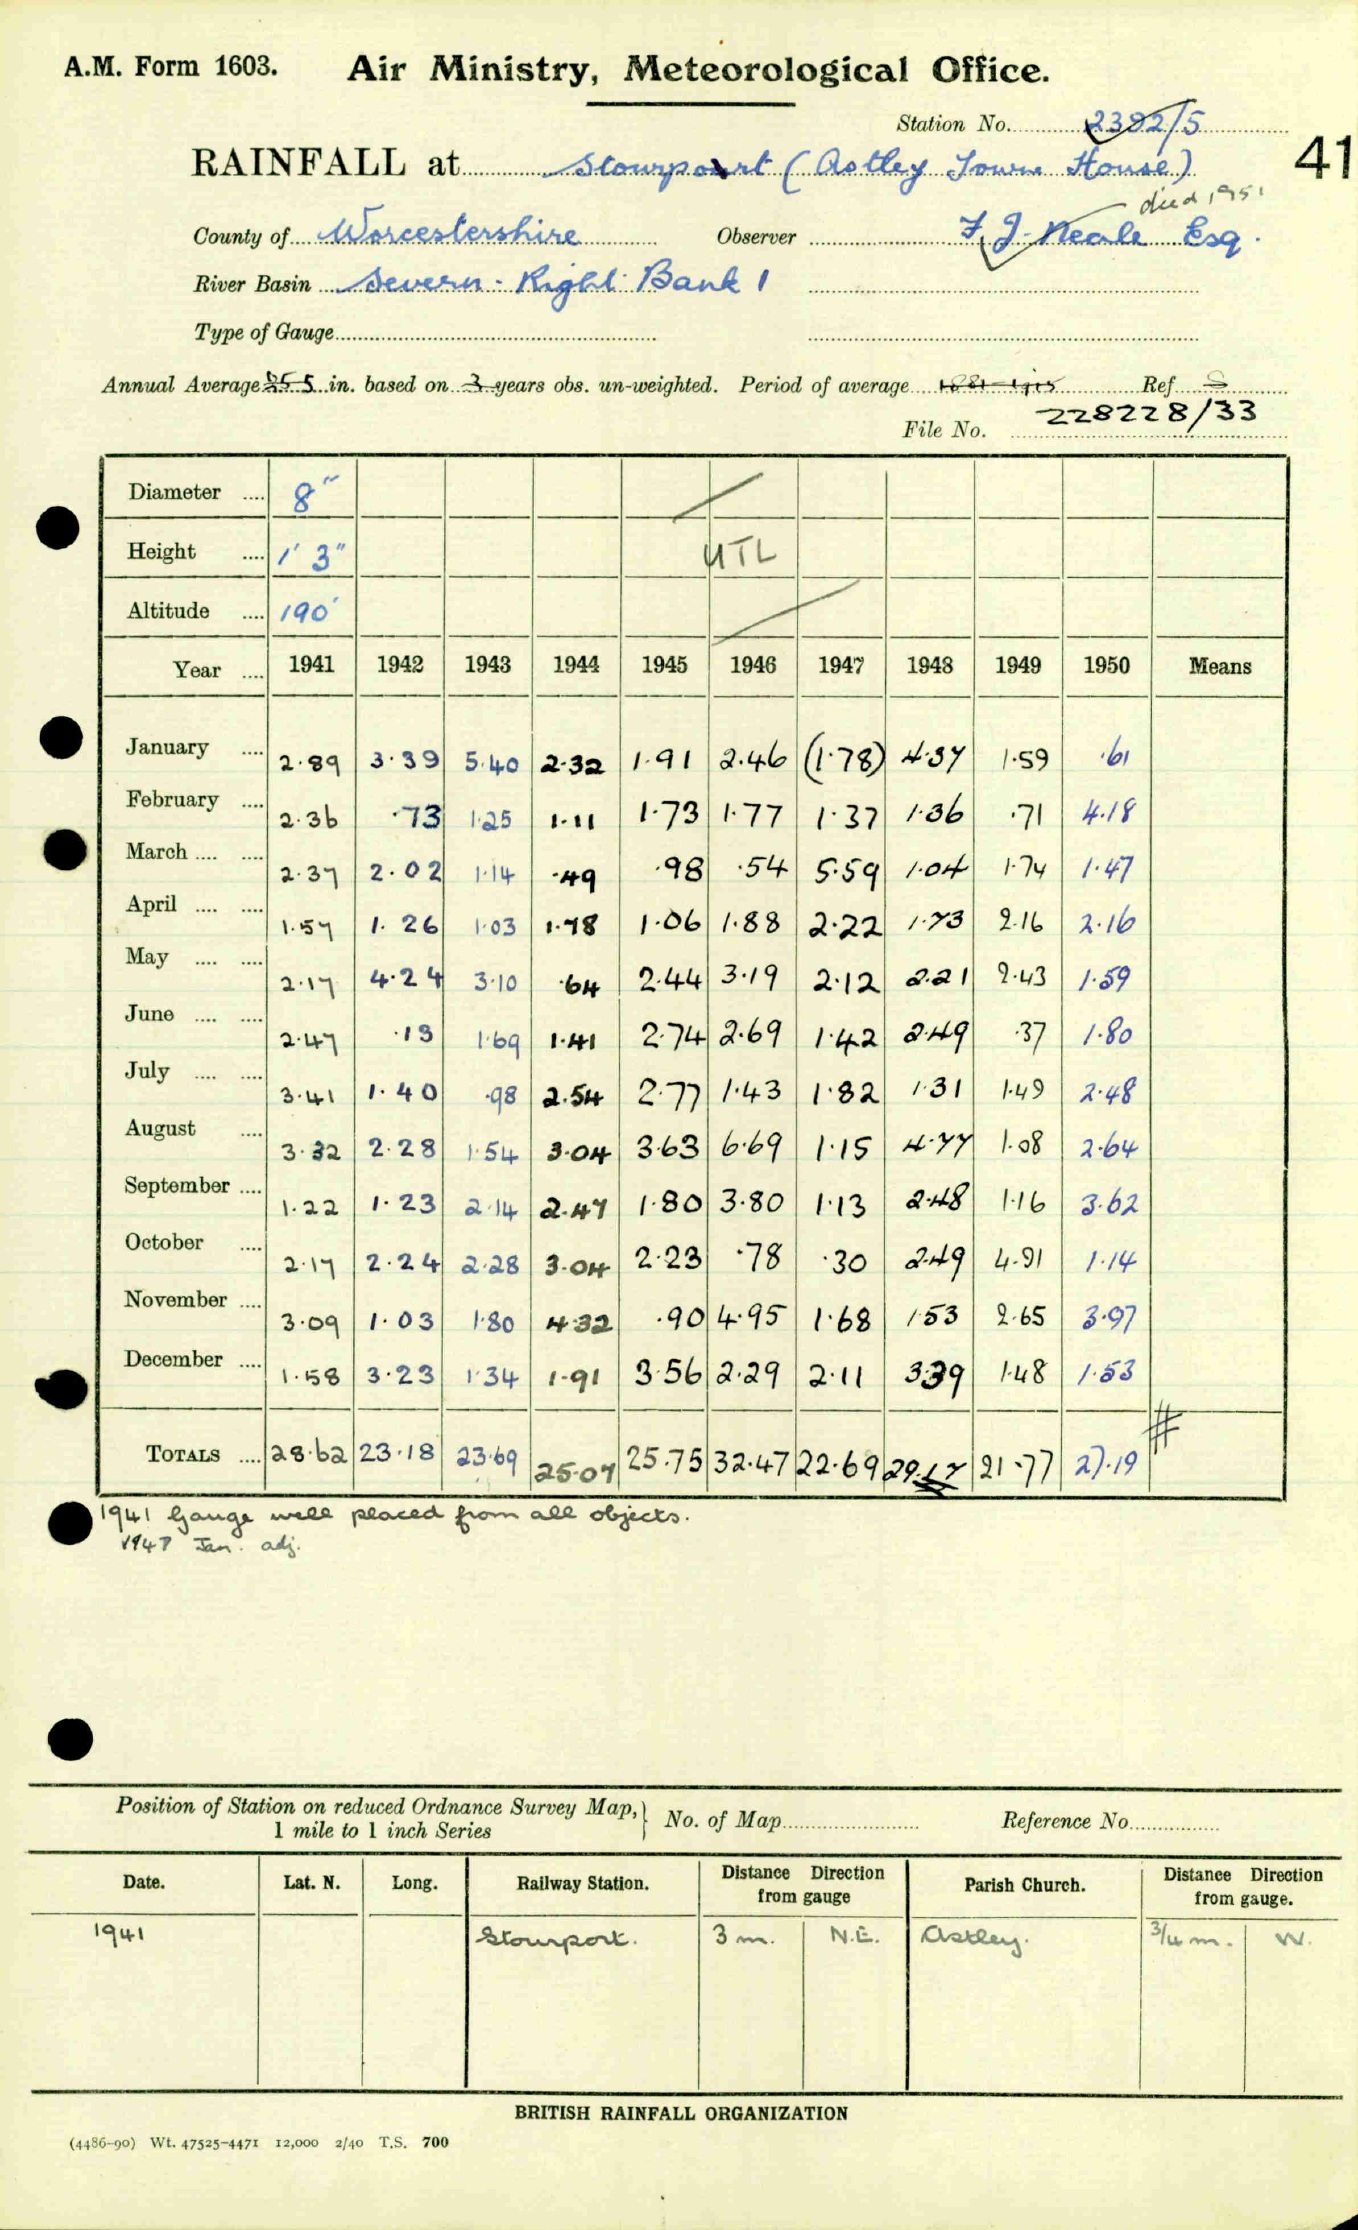 A.M. Form 1603. Air Ministry, Meteorological Office.
Station No. 2392/5
41
RAINFALL at Stourport (Astley Town House)
died 1951
County of Worcestershire Observer F. J. Neale Esq.
River Basin Severn - Right Bank 1
Type of Gauge
Annual Average 25.5 in. based on 3 years obs. un-weighted. Period of average 1881-1915 Ref. S
File No. 228228/33
Diameter .... 8"
Height .... 1' 3" UTL
Altitude .... 190'
Year .... 1941 1942 1943 1944 1945 1946 1947 1948 1949 1950 Means
January .... 2.89 3.39 5.40 2.32 1.91 2.46 (1.78) 4.37 1.59 .61
February .... 2.36 .73 1.25 1.11 1.73 1.77 1.37 1.36 .71 4.18
March .... .... 2.37 2.02 1.14 .49 .98 .54 5.59 1.04 1.74 1.47
April .... .... 1.57 1.26 1.03 1.78 1.06 1.88 2.22 1.73 2.16 2.16
May .... .... 2.17 4.24 3.10 .64 2.44 3.19 2.12 2.21 2.43 1.59
June .... .... 2.47 .13 1.69 1.41 2.74 2.69 1.42 2.49 .37 1.80
July .... .... 3.41 1.40 .98 2.54 2.77 1.43 1.82 1.31 1.49 2.48
August .... 3.32 2.28 1.54 3.04 3.63 6.69 1.15 4.77 1.08 2.64
September .... 1.22 1.23 2.14 2.47 1.80 3.80 1.13 2.48 1.16 3.62
October .... 2.17 2.24 2.28 3.04 2.23 .78 .30 2.49 4.91 1.14
November .... 3.09 1.03 1.80 4.32 .90 4.95 1.68 1.53 2.65 3.97
December .... 1.58 3.23 1.34 1.91 3.56 2.29 2.11 3.39 1.48 1.53
TOTALS .... 28.62 23.18 23.69 25.07 25.75 32.47 22.69 29.17 21.77 27.19 #
1941 Gauge well placed from all objects.
1947 Jan. adj.
Position of Station on reduced Ordnance Survey Map, 1 mile to 1 inch Series } No. of Map Reference No.
Date. Lat. N. Long. Railway Station. Distance Direction from gauge Parish Church. Distance Direction from gauge.
1941 Stourport. 3 m. N.E. Astley. 3/4 m. W.
BRITISH RAINFALL ORGANIZATION
(4486-90) Wt. 47525-4471 12,000 2/40 T.S. 700